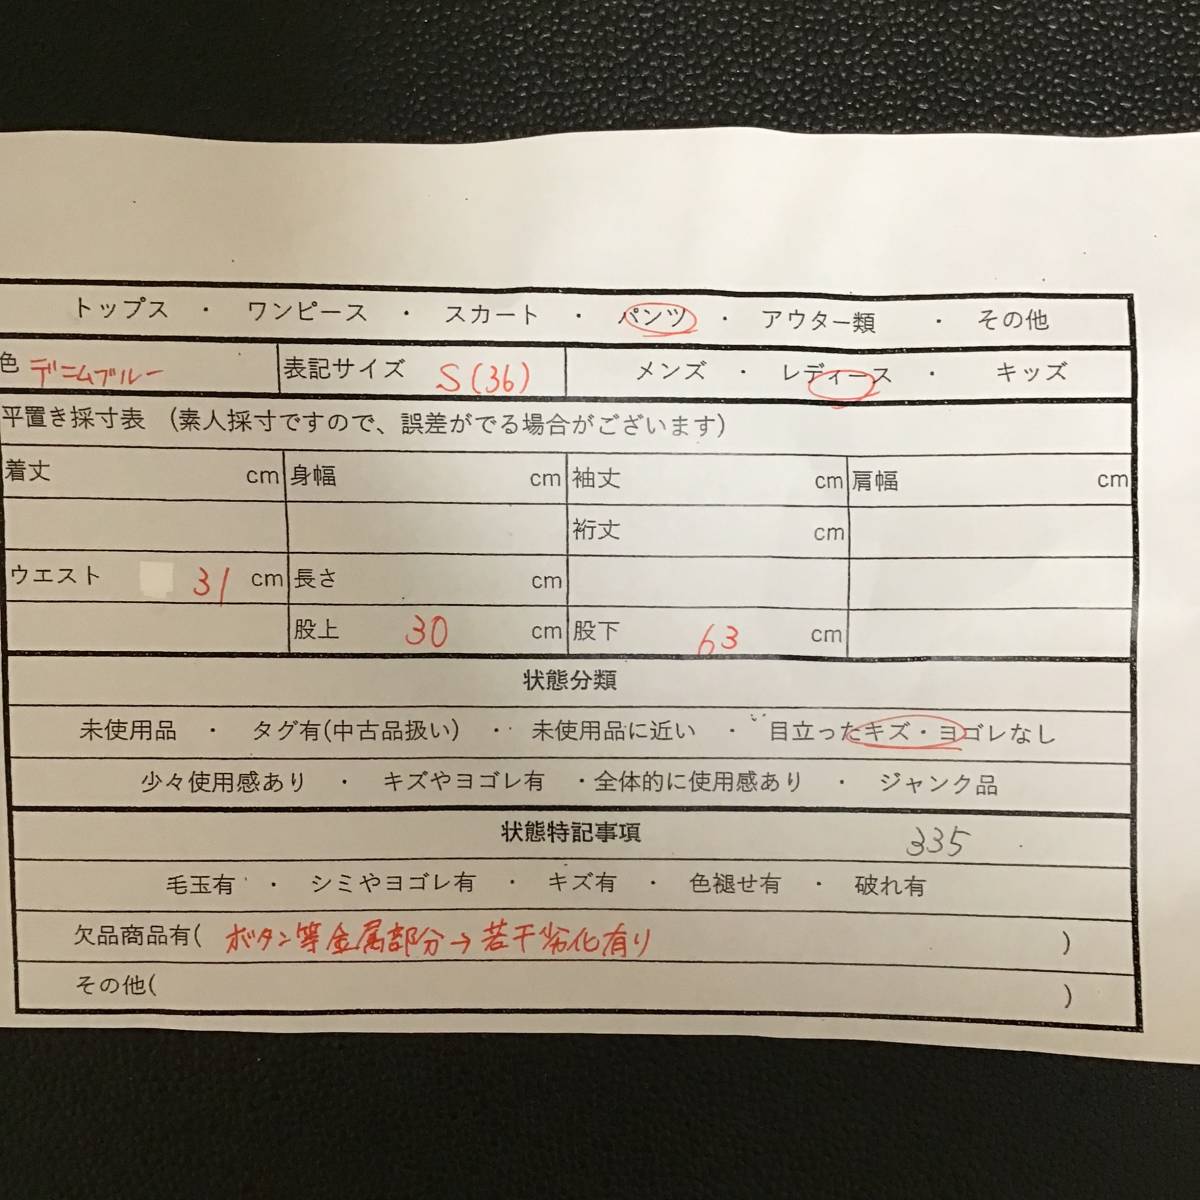 トップス ・ ワンピース ・ スカート ・ パンツ ・ アウター類 ・ その他
色 デニムブルー 表記サイズ S(36) メンズ ・ レディース ・ キッズ
平置き採寸表 (素人採寸ですので、誤差がでる場合がございます)
着丈 cm 身幅 cm 袖丈 cm 肩幅 cm
裄丈 cm
ウエスト 31 cm 長さ cm
股上 30 cm 股下 63 cm
状態分類
未使用品 ・ タグ有(中古品扱い) ・ 未使用品に近い ・ 目立ったキズ・ヨゴレなし
少々使用感あり ・ キズやヨゴレ有 ・全体的に使用感あり ・ ジャンク品
状態特記事項 335
毛玉有 ・ シミやヨゴレ有 ・ キズ有 ・ 色褪せ有 ・ 破れ有
欠品商品有( ボタン等金属部分→若干劣化有り )
その他( )